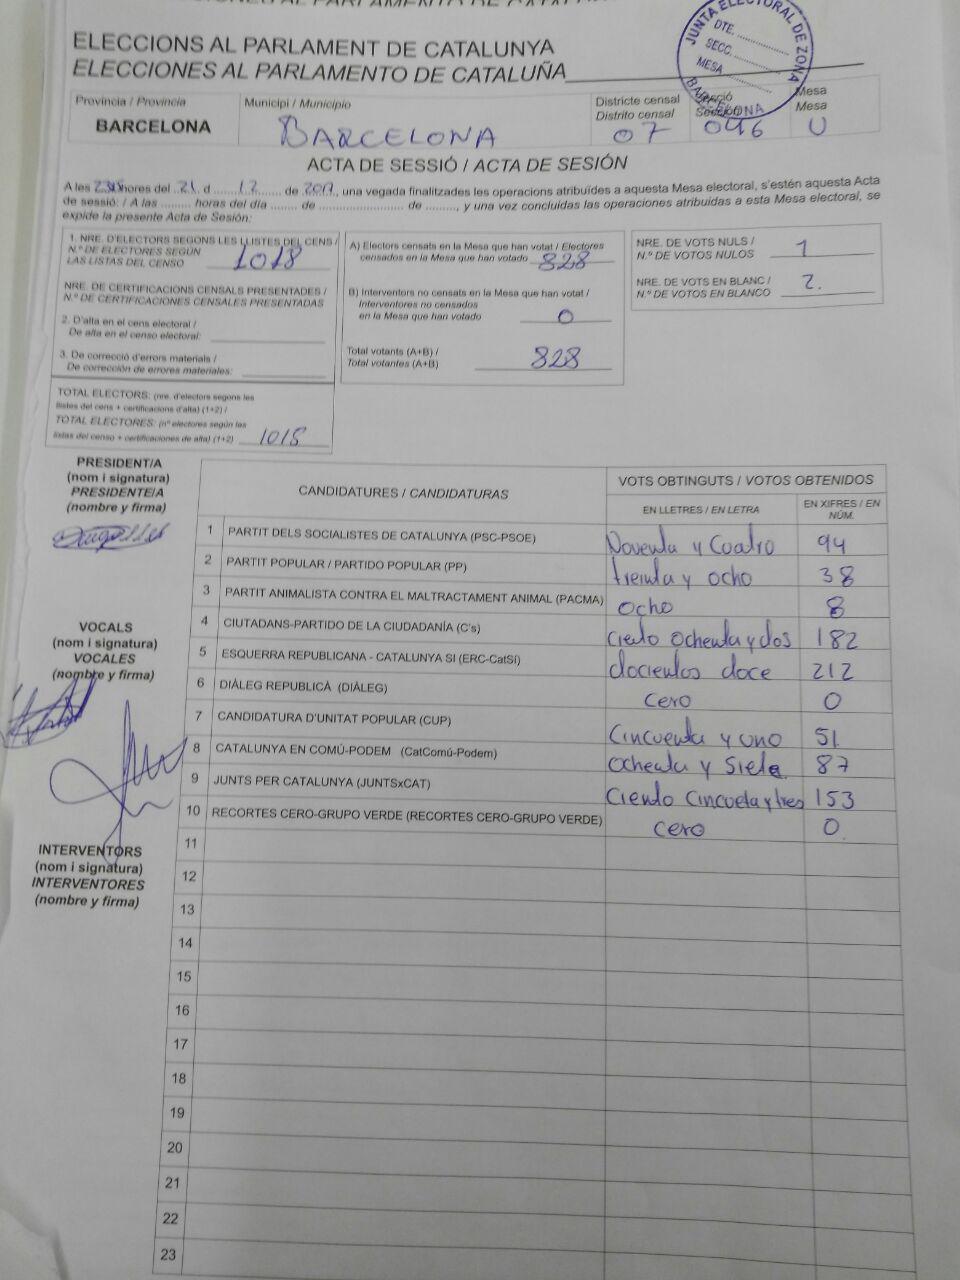 ELECCIONS AL PARLAMENT DE CATALUNYA
ELECCIONES AL PARLAMENTO DE CATALUÑA
JUNTA ELECTORAL DE ZONA
DTE.
SECC.
MESA
BARCELONA
Província / Provincia
BARCELONA
Municipi / Municipio
BARCELONA
Districte censal
Distrito censal
07
Secció
Sección
046
Mesa
Mesa
U
ACTA DE SESSIÓ / ACTA DE SESIÓN
A les hores del 21 d 12 de 2017, una vegada finalitzades les operacions atribuïdes a aquesta Mesa electoral, s'estén aquesta Acta
de sessió: / A las ........ horas del día ........ de ........ de ........, y una vez concluidas las operaciones atribuidas a esta Mesa electoral, se
expide la presente Acta de Sesión:
1. NRE. D'ELECTORS SEGONS LES LLISTES DEL CENS /
N.º DE ELECTORES SEGÚN
LAS LISTAS DEL CENSO 1018
NRE. DE CERTIFICACIONS CENSALS PRESENTADES /
N.º DE CERTIFICACIONES CENSALES PRESENTADAS
2. D'alta en el cens electoral /
De alta en el censo electoral:
3. De correcció d'errors materials /
De corrección de errores materiales:
TOTAL ELECTORS: (nre. d'electors segons les
llistes del cens + certificacions d'alta) (1+2) /
TOTAL ELECTORES: (nº electores según las
listas del censo + certificaciones de alta) (1+2) 1018
A) Electors censats en la Mesa que han votat / Electores
censados en la Mesa que han votado 828
B) Interventors no censats en la Mesa que han votat /
Interventores no censados
en la Mesa que han votado 0
Total votants (A+B) /
Total votantes (A+B) 828
NRE. DE VOTS NULS /
N.º DE VOTOS NULOS 1
NRE. DE VOTS EN BLANC /
N.º DE VOTOS EN BLANCO 2.
PRESIDENT/A
(nom i signatura)
PRESIDENTE/A
(nombre y firma)
VOCALS
(nom i signatura)
VOCALES
(nombre y firma)
INTERVENTORS
(nom i signatura)
INTERVENTORES
(nombre y firma)
CANDIDATURES / CANDIDATURAS
VOTS OBTINGUTS / VOTOS OBTENIDOS
EN LLETRES / EN LETRA
EN XIFRES / EN
NÚM.
1 PARTIT DELS SOCIALISTES DE CATALUNYA (PSC-PSOE) Noventa y Cuatro 94
2 PARTIT POPULAR / PARTIDO POPULAR (PP) treinta y ocho 38
3 PARTIT ANIMALISTA CONTRA EL MALTRACTAMENT ANIMAL (PACMA) ocho 8
4 CIUTADANS-PARTIDO DE LA CIUDADANÍA (C's) ciento ochenta y dos 182
5 ESQUERRA REPUBLICANA - CATALUNYA SI (ERC-CatSí) docientos doce 212
6 DIÀLEG REPUBLICÀ (DIÀLEG) cero 0
7 CANDIDATURA D'UNITAT POPULAR (CUP) Cincuenta y uno 51
8 CATALUNYA EN COMÚ-PODEM (CatComú-Podem) Ochenta y Siete 87
9 JUNTS PER CATALUNYA (JUNTSxCAT) Ciento Cincueta y tres 153
10 RECORTES CERO-GRUPO VERDE (RECORTES CERO-GRUPO VERDE) cero 0.
11
12
13
14
15
16
17
18
19
20
21
22
23